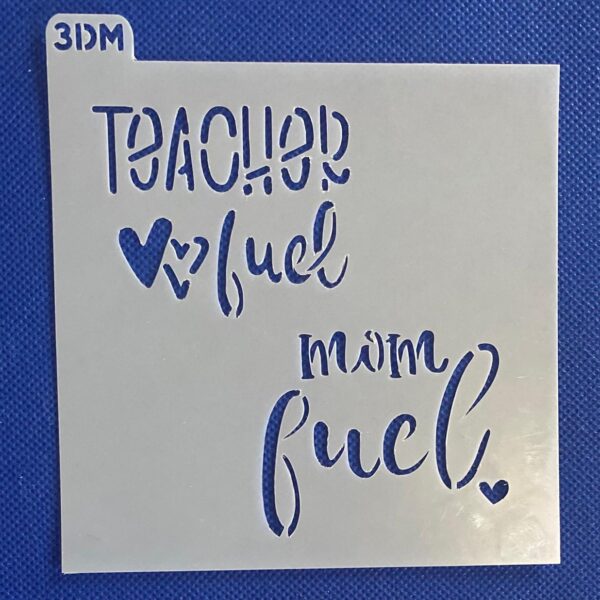 3DM
TeACHeR
fuel
mom
fuel